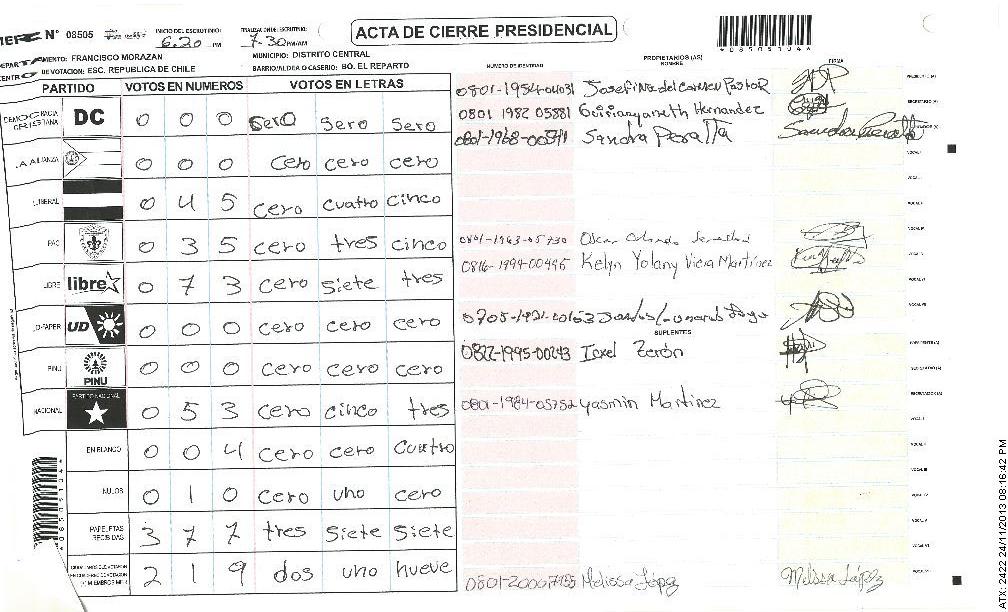 N° 08505
INICIO DEL ESCRUTINIO: 6:20 PM
7-30 PM/AM
ACTA DE CIERRE PRESIDENCIAL
FRANCISCO MORAZAN
MUNICIPIO: DISTRITO CENTRAL
DE VOTACION: ESC. REPUBLICA DE CHILE
BARRIO/ALDEA O CASERIO: BO. EL REPARTO
PARTIDO VOTOS EN NUMEROS VOTOS EN LETRAS
NUMERO DE IDENTIDAD PROPIETARIOS (AS) NOMBRE FIRMA
DC 0 0 0 sero sero sero
LA ALIANZA 0 0 0 cero cero cero
LIBERAL 0 4 5 cero cuatro cinco
PAC 0 3 5 cero tres cinco
LIBRE libre 0 7 3 cero siete tres
UD 0 0 0 cero cero cero
PINU PINU 0 0 0 cero cero cero
NACIONAL PARTIDO NACIONAL 0 5 3 cero cinco tres
EN BLANCO 0 0 4 cero cero cuatro
NULOS 0 1 0 cero uno cero
PAPELETAS RECIBIDAS 3 7 7 tres siete siete
2 1 9 dos uno nueve
Josefina del carmen Pastor
0801 1982 05881 Hernandez
Sandra Peralta
0801-1963-05730 Oscar Orlando
0816-1994-00495 Kelyn Yolany Martínez
SUPLENTES
0822-1995-00243 Zerón
0801-1984-05752 yasmin Martinez
Melissa López Melissa López
ATX: 2422 24/11/2013 08:16:42 PM